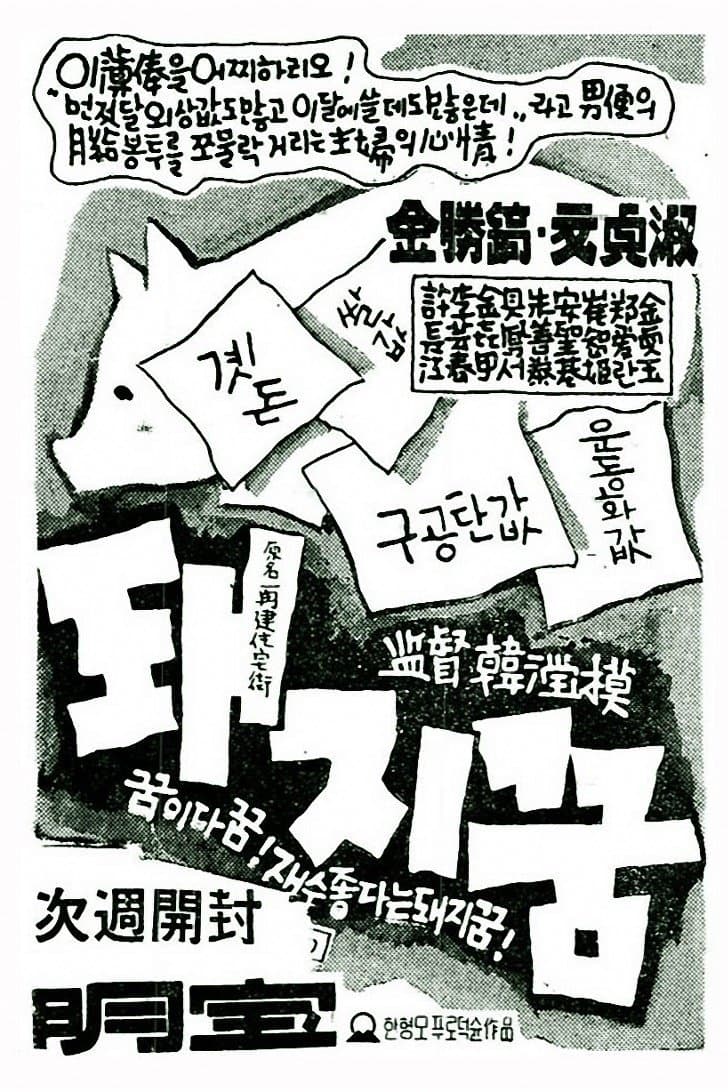 이薄俸을 어찌하리오!
"먼저달 외상값도 많고 이달에 쓸데도 많은데.." 라고 男便의
月給봉투를 쪼물락 거리는 主婦의 心情!
金勝鎬·文貞淑
許長江
金喜甲
具鳳書
安聖基
崔智姬
鄭愛란
쌀값
곗돈
구공탄값
운동화값
原名 再建住宅街
監督 韓瀅模
돼지꿈
꿈이다꿈! 재수좋다는돼지꿈!
次週開封
明宝
한형모푸로덕슌作品